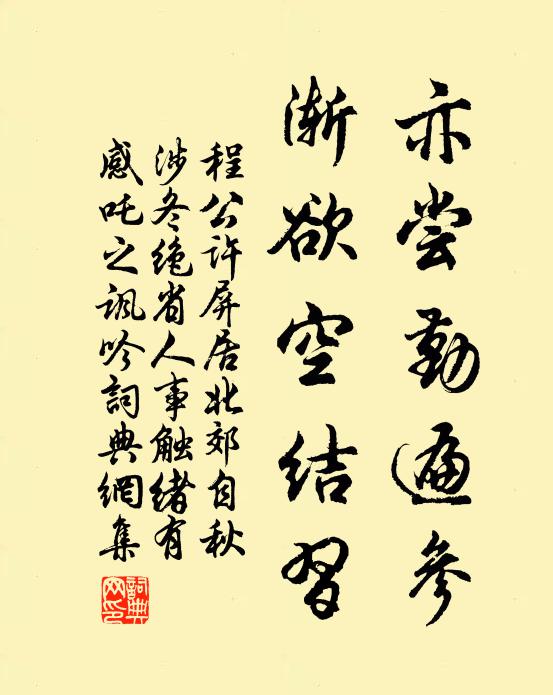 亦尝勤遍参
渐欲空结习
程公许屏居北郊自秋
涉冬绝省人事触绪有
感吒之讽吟词典网集
詞典网印